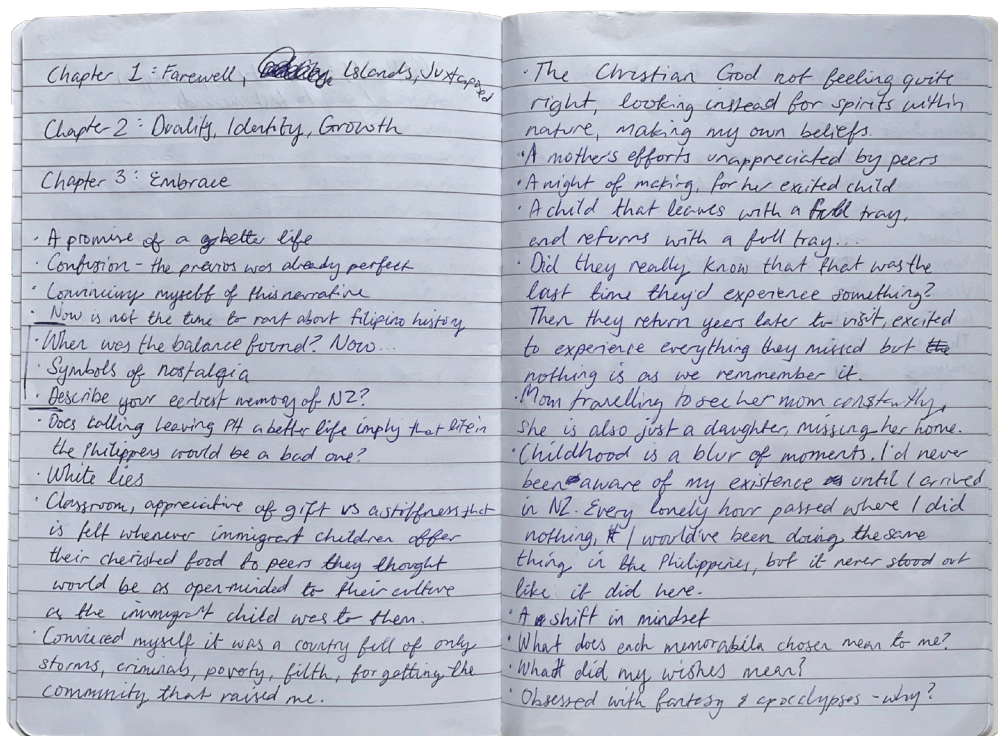 Chapter 1: Farewell, Islands, Juxtaposed
Chapter 2: Duality, Identity, Growth
Chapter 3: Embrace
· A promise of a better life
· Confusion - the previos was already perfect
· Convincing myself of this narrative
· Now is not the time to rant about filipino history
· When was the balance found? Now...
· Symbols of nostalgia
· Describe your earliest memory of NZ?
· Does calling leaving PH a better life imply that life in
the Philippens would be a bad one?
· White lies
· Classroom, appreciative of gift vs a stiffness that
is felt whenever immigrant children offer
their cherished food to peers they thought
would be as open-minded to their culture
as the immigrant child was to them.
· Convinced myself it was a country full of only
storms, criminals, poverty, filth, forgetting the
community that raised me.
· The Christian God not feeling quite
right, looking instead for spirits within
nature, making my own beliefs.
· A mother's efforts unappreciated by peers
· A night of making, for her excited child
· A child that leaves with a full tray,
and returns with a full tray...
· Did they really know that that was the
last time they'd experience something?
Then they return years later to visit, excited
to experience everything they missed but
nothing is as we remmember it.
· Mom travelling to see her mom constantly,
she is also just a daughter, missing her home.
· Childhood is a blur of moments. I'd never
been aware of my existence until I arrived
in NZ. Every lonely hour passed where I did
nothing, I would've been doing the same
thing in the Philippines, but it never stood out
like it did here.
· A shift in mindset
· What does each memorabilia chosen mean to me?
· What did my wishes mean?
· Obsessed with fantasy & apocalypses - why?